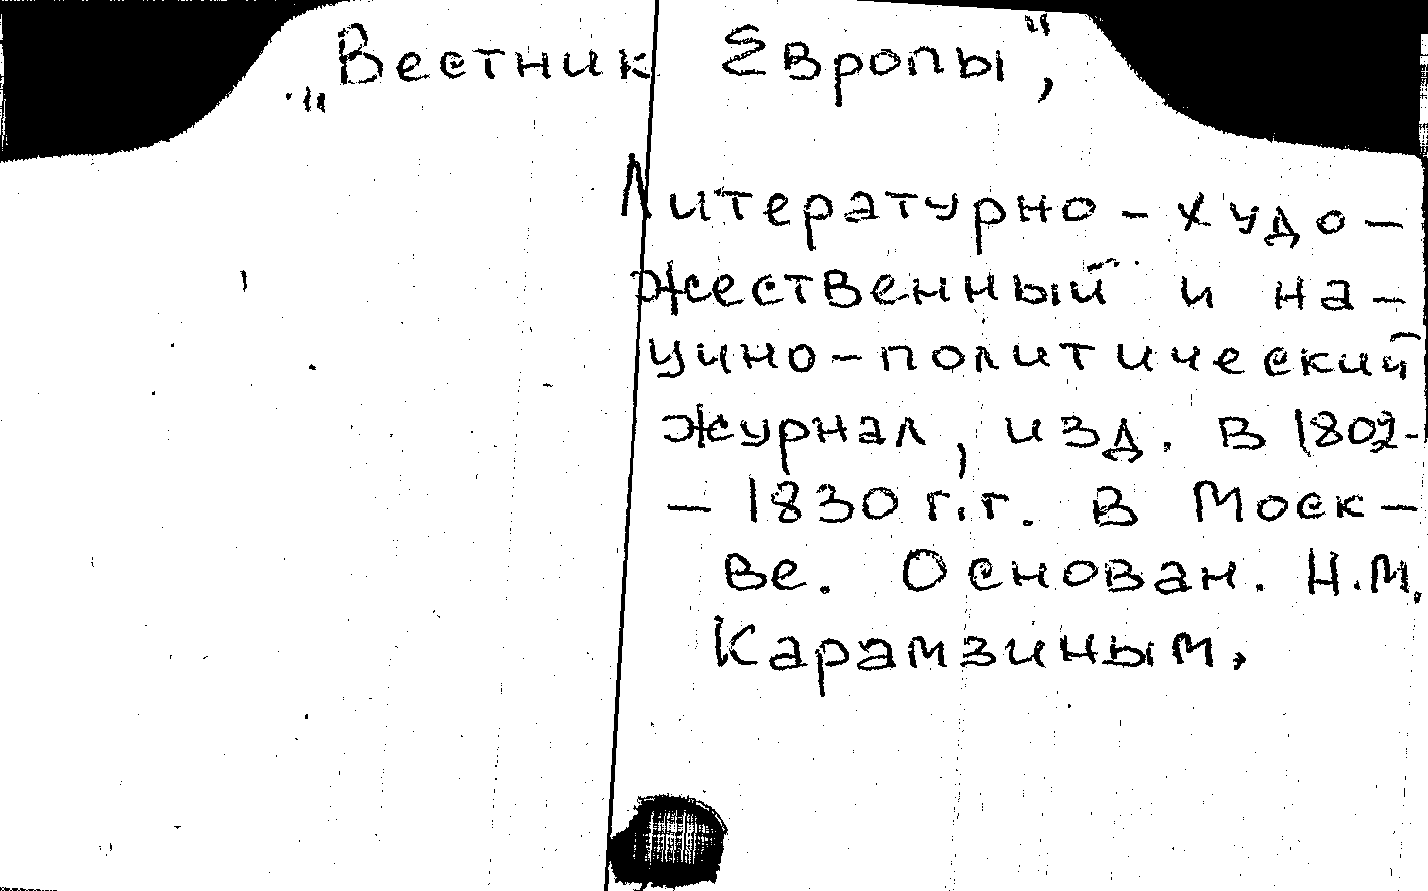 „Вестник Европы",
Литературно-худо-
жественный и на-
учно-политический
журнал, изд. в 1802-
- 1830 г.г. в Моск-
ве. Основан. Н.М.
Карамзиным.